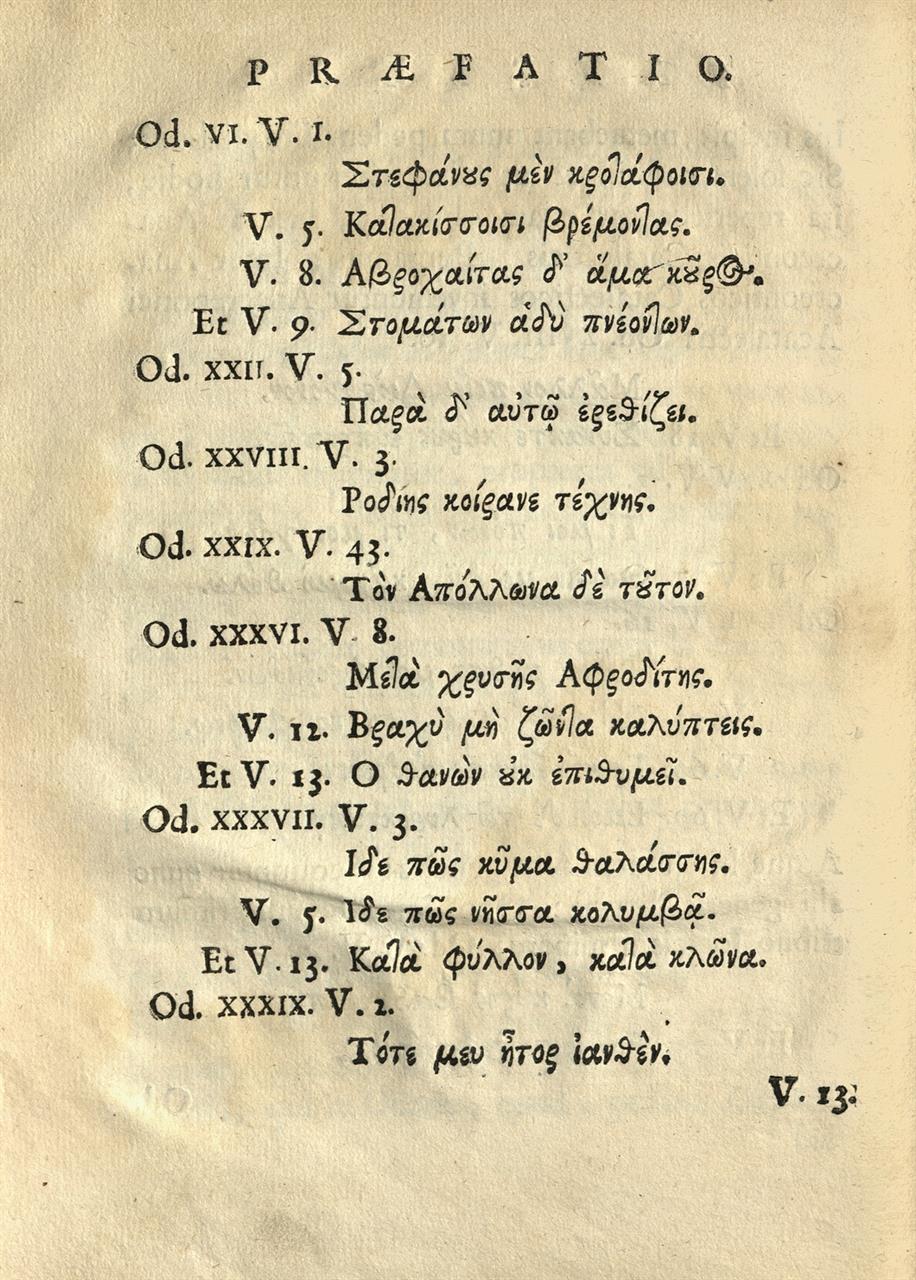 PRÆFATIO.
Od. VI. V. 1.
Στεφάνους μὲν κροτάφοισι.
V. 5. Κατακίσσοισι βρέμοντας.
V. 8. Αβροχαίτας δ' ἅμα κοῦρος.
Et V. 9. Στομάτων ἁδὺ πνέοντων.
Od. XXII. V. 5.
Παρὰ δ' αὐτῷ ἐρεθίζει.
Od. XXVIII. V. 3.
Ροδίης κοίρανε τέχνης.
Od. XXIX. V. 43.
Τὸν Απόλλωνα δὲ τοῦτον.
Od. XXXVI. V. 8.
Μετὰ χρυσῆς Αφροδίτης.
V. 12. Βραχὺ μὴ ζῶντα καλύπτεις.
Et V. 13. Ο θανὼν οὐκ ἐπιθυμεῖ.
Od. XXXVII. V. 3.
Ιδε πῶς κῦμα θαλάσσης.
V. 5. Ιδε πῶς νῆσσα κολυμβᾷ.
Et V. 13. Κατὰ φύλλον, κατὰ κλῶνα.
Od. XXXIX. V. 2.
Τότε μευ ἦτορ ἰανθὲν.
V. 13.